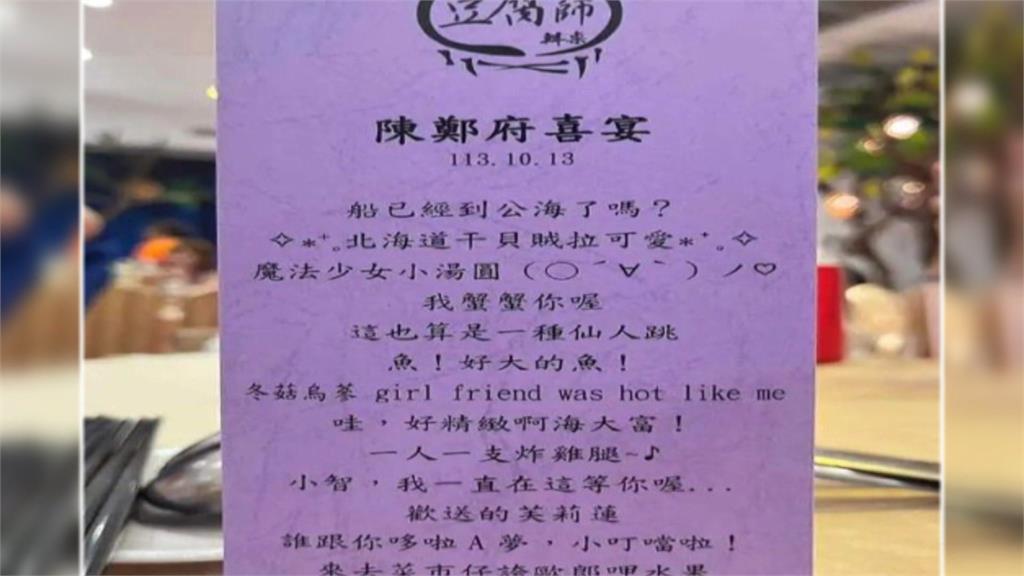 豆腐師
辦桌
陳鄭府喜宴
113.10.13
船已經到公海了嗎？
✧*⁺。北海道干貝賊拉可愛*⁺。✧
魔法少女小湯圓（◯ˊ∀ˋ）ノ♡
我蟹蟹你喔
這也算是一種仙人跳
魚！好大的魚！
冬菇烏蔘 girl friend was hot like me
哇，好精緻啊海大富！
一人一支炸雞腿~♪
小智，我一直在這等你喔...
歡送的芙莉蓮
誰跟你哆啦A夢，小叮噹啦！
來去菜市仔講歐郎呷水果